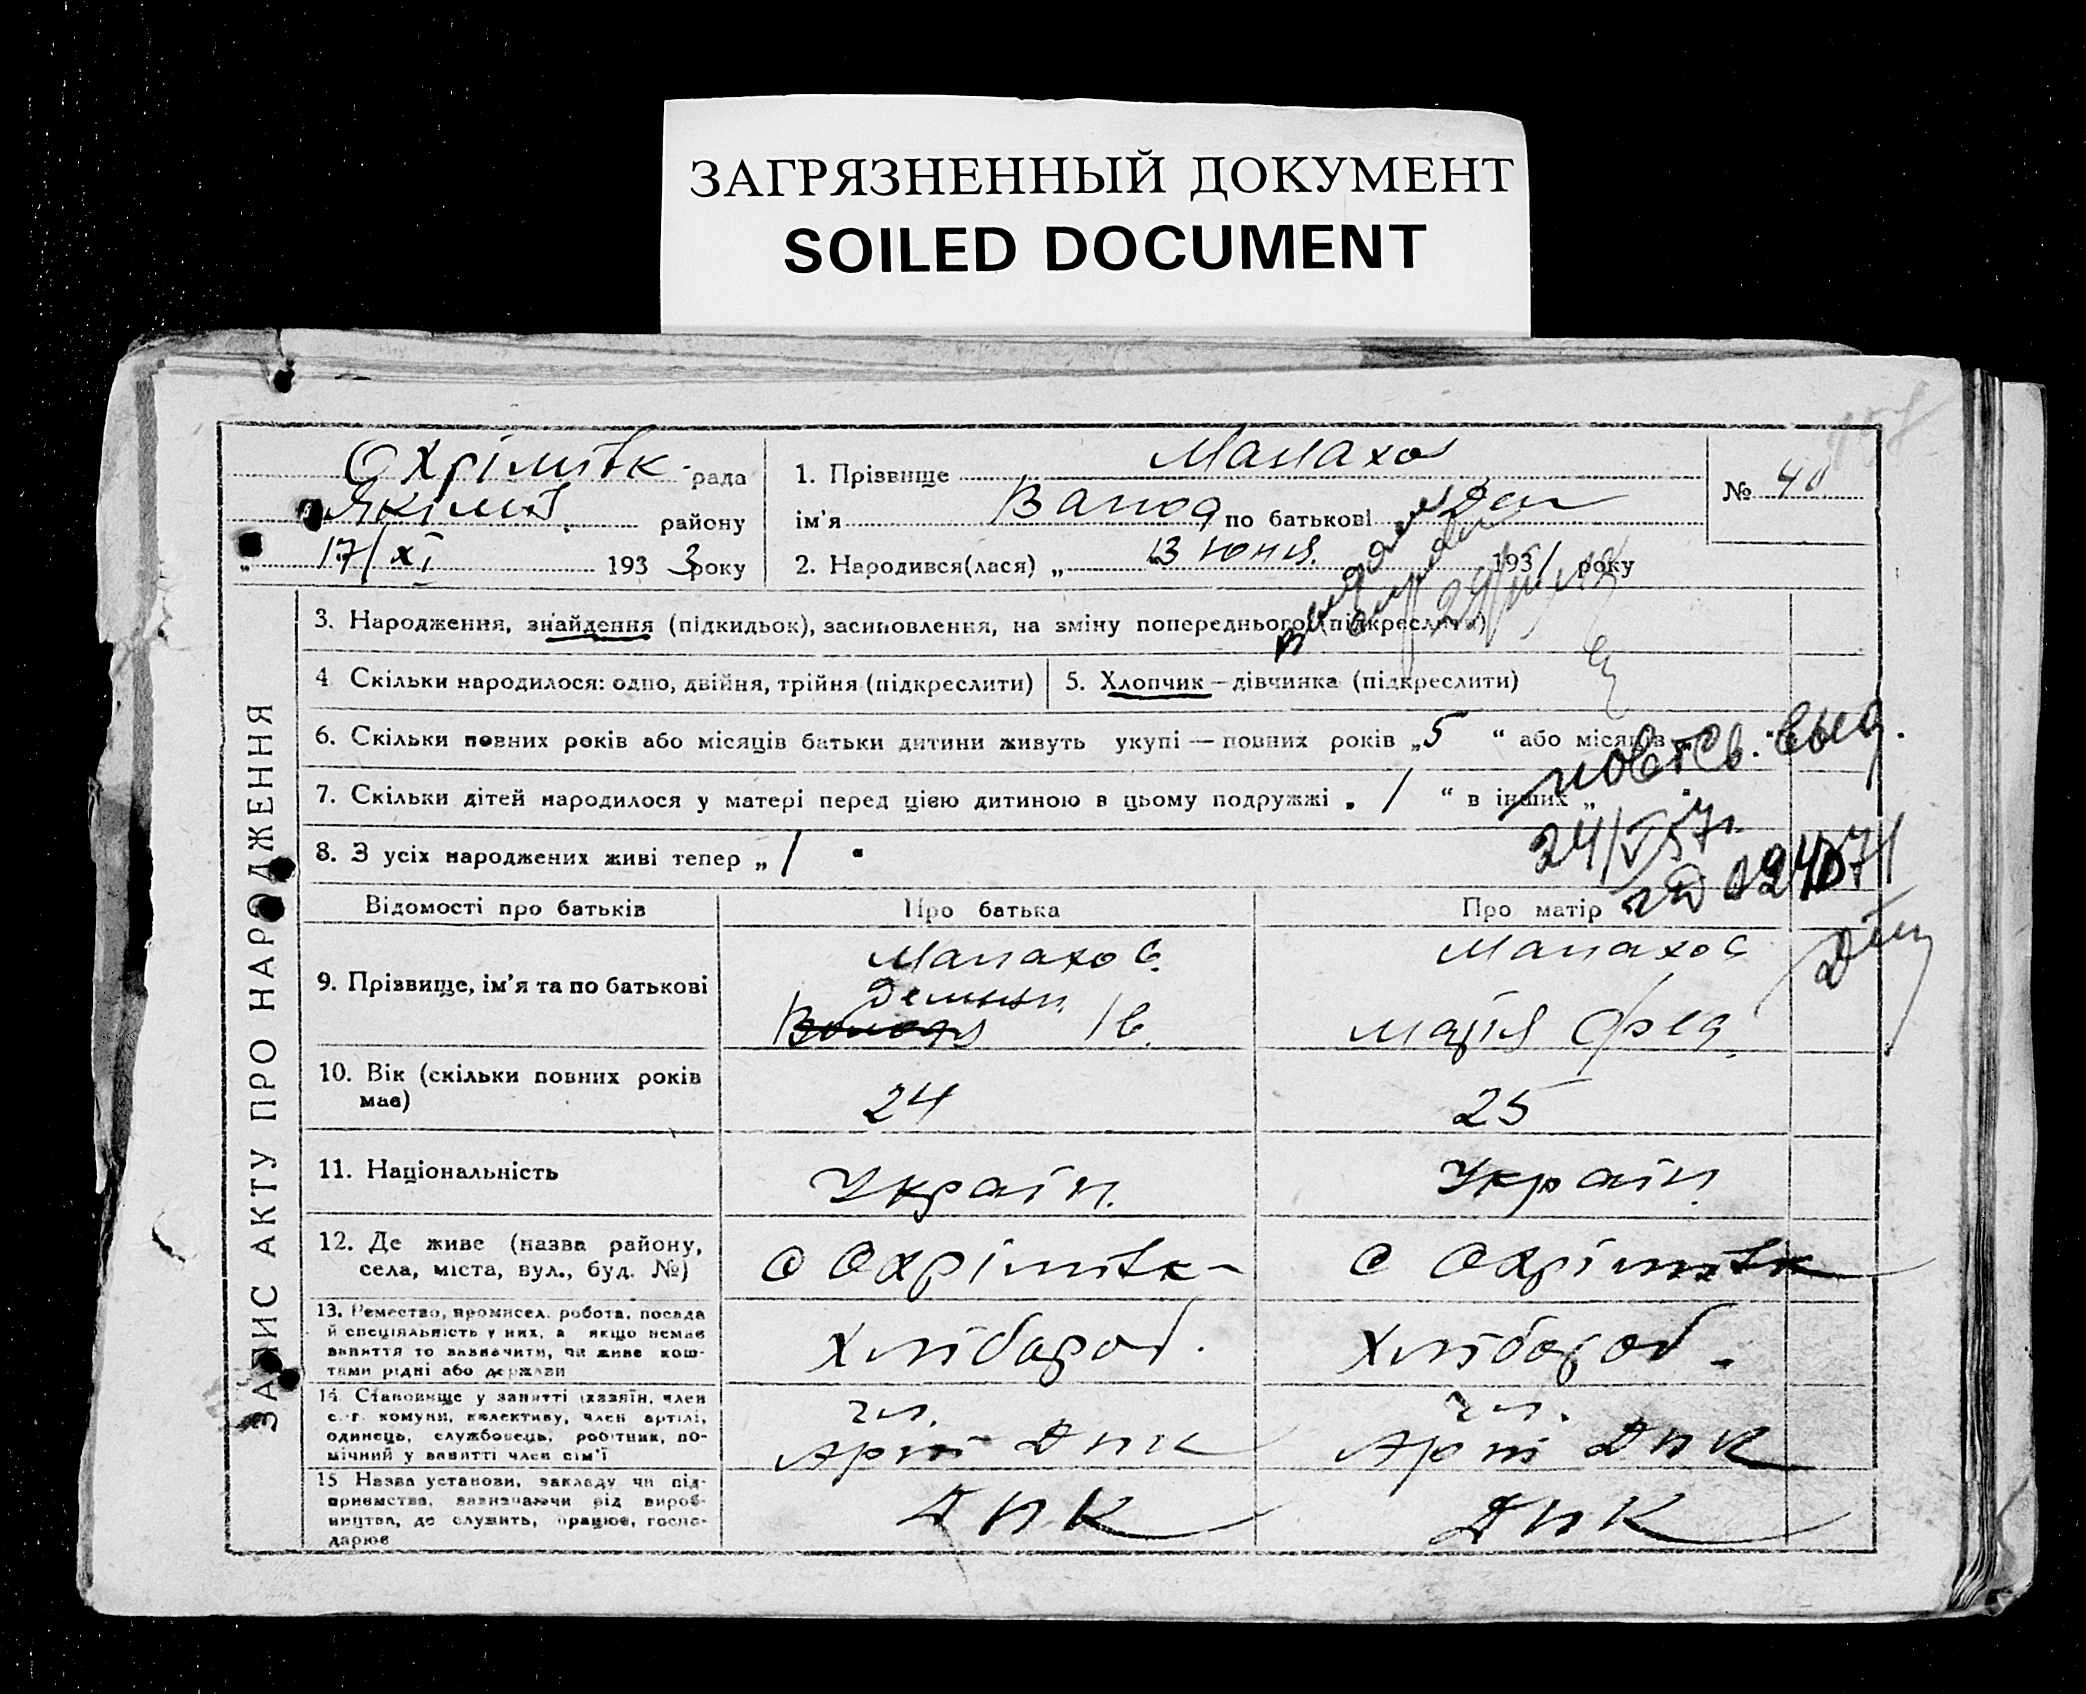 ЗАГРЯЗНЕННЫЙ ДОКУМЕНТ
SOILED DOCUMENT
рада
району
17/XI 1933 року
1. Прізвище Малахов
ім'я по батькові
2. Народився(лася) „ 13 юня 1931 року
№ 40
ЗАПИС АКТУ ПРО НАРОДЖЕННЯ
3. Народження, знайдення (підкидьок), засиновлення, на зміну попереднього (підкреслити)
4 Скільки народилося: одно, двійня, трійня (підкреслити)
5. Хлопчик — дівчинка (підкреслити)
6. Скільки повних років або місяців батьки дитини живуть укупі — повних років „ 5 “ або місяців
7. Скільки дітей народилося у матері перед цією дитиною в цьому подружжі „ 1 “ в інших „
8. З усіх народжених живі тепер „ 1
повт. св. выд.
24/V 57г.
Відомості про батьків
Про батька
Про матір
9. Прізвище, ім'я та по батькові
Малахов
Ів.
Малахов
Марія Фед.
10. Вік (скільки повних років має)
24
25
11. Національність
Україн.
Україн.
12. Де живе (назва району,
села, міста, вул., буд. №)
с Охрімівк
с Охрімівк
13. Ремество, промисел, робота, посада
й спеціяльність у них, а якщо немає
заняття то зазначити, чи живе кош-
тами рідні або держави
Хлібороб.
Хлібороб.
14. Становище у занятті (хазяїн, член
с.-г. комуни, колективу, член артілі,
одинець, службовець, робітник, по-
мічний у занятті член сім'ї
чл.
Артіл ДПК
чл.
Артіл ДПК
15 Назва установи, закладу чи під-
приємства, зазначаючи рід вироб-
ництва, де служить, працює, госпо-
дарює
ДПК
ДПК